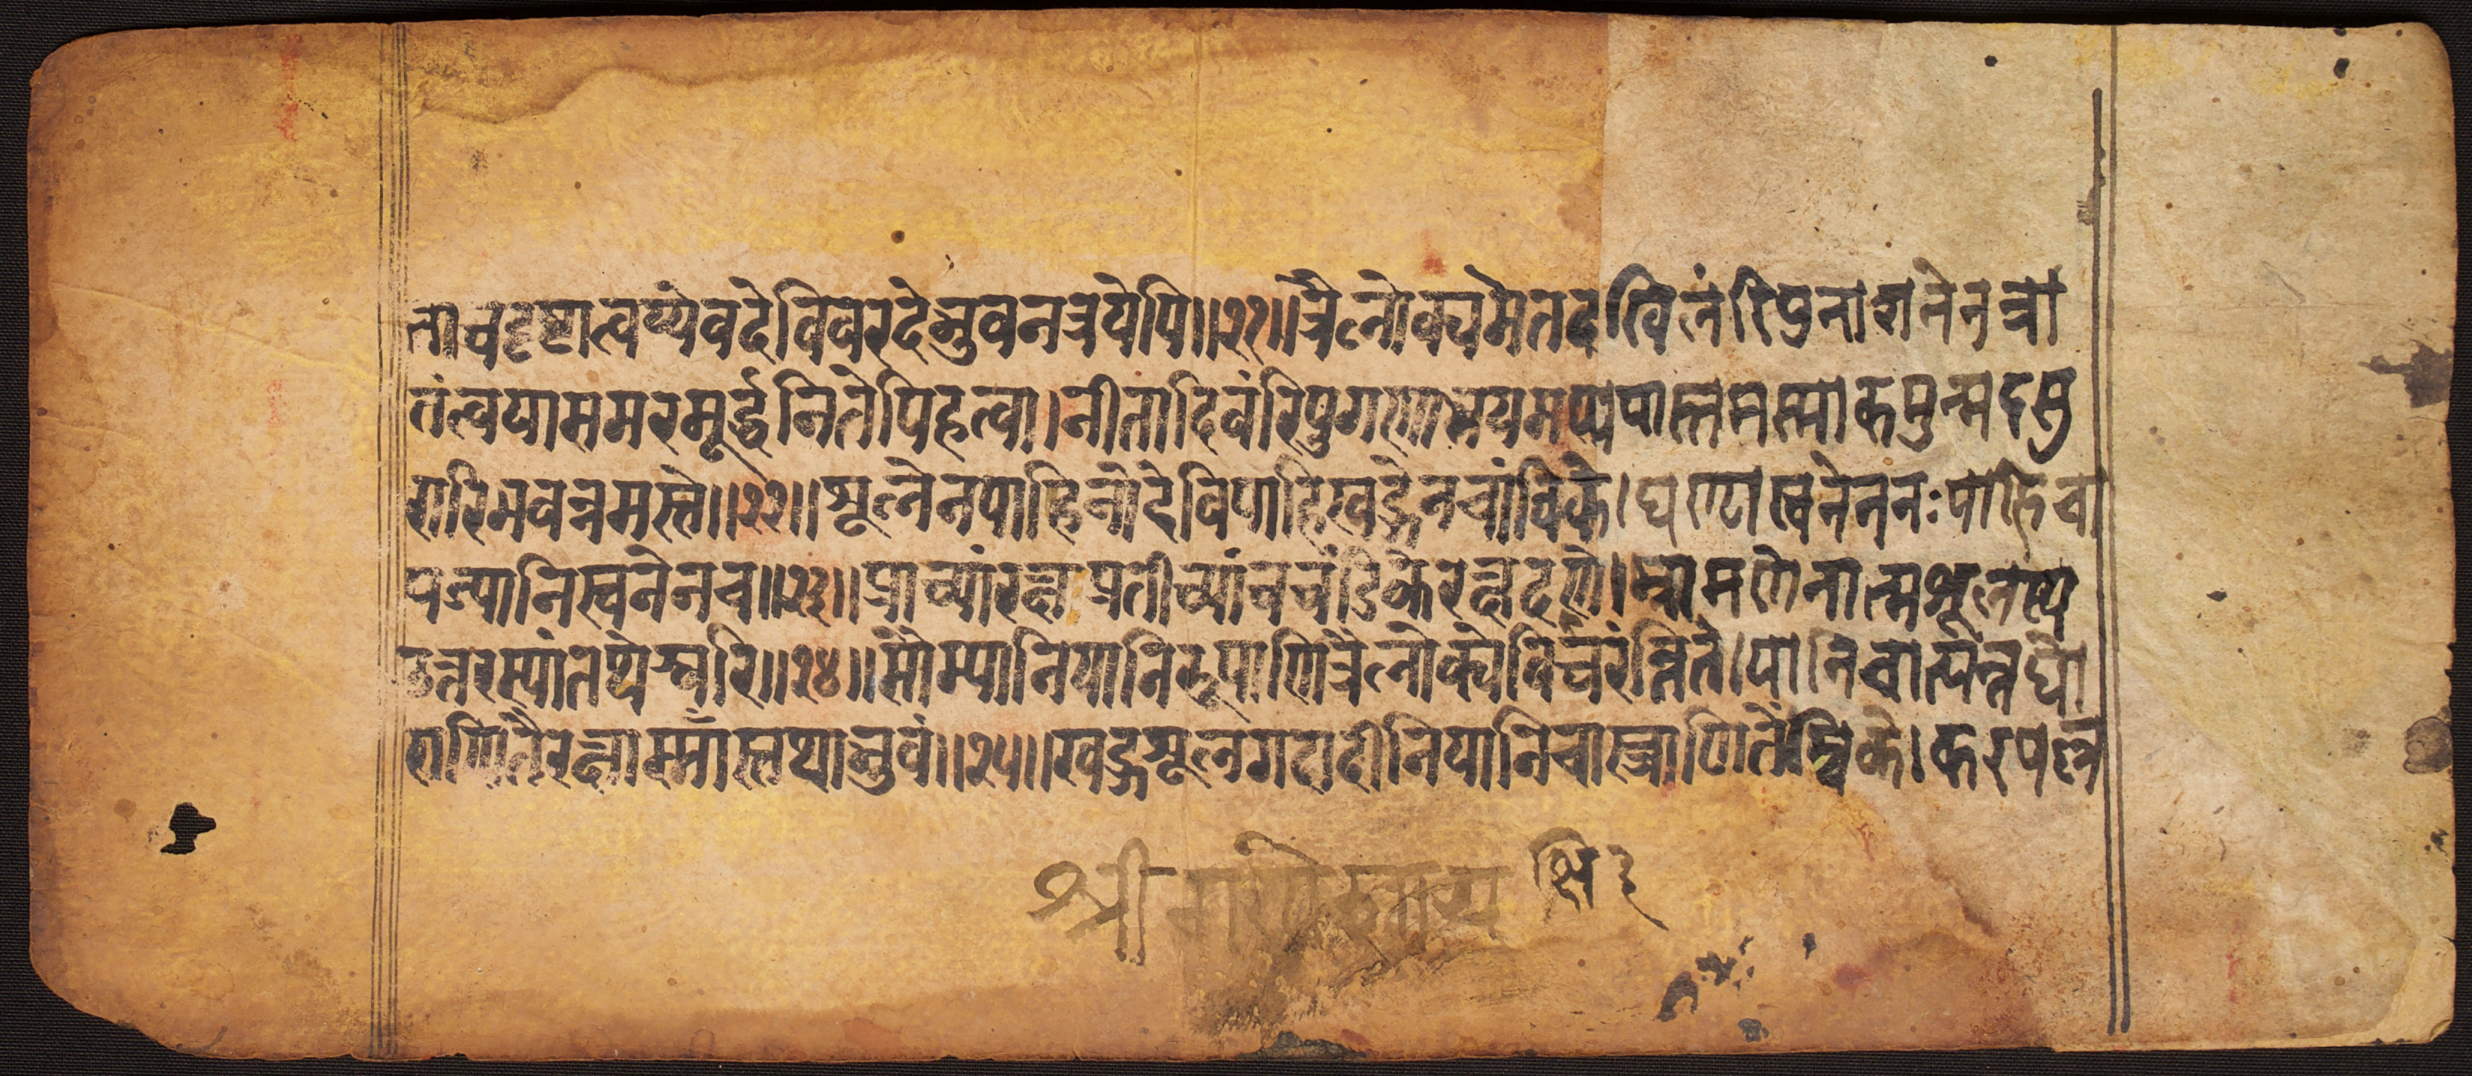 ता च दृष्टा त्वय्येव देवि वरदे भुवनत्रयेपि॥२१॥त्रैलोक्यमेतदखिलं रिपुनाशनेन त्रा
तं त्वया ममरमूर्द्धनि तेपि हत्वा।नीता दिवं रिपुगणा भयमप्यपास्तमस्माकमुन्मदसु
रारिभवन्नमस्ते॥२२॥शूलेन पाहि नो देवि पाहि खड्गेन चांबिके।घण्टास्वनेन नः पाहि चा
पज्यानिस्वनेन च॥२३॥प्राच्यां रक्ष प्रतीच्यां च चंडिके रक्ष दक्षिणे।भ्रामणेनात्मशूलस्य
उत्तरस्यां तथेश्वरि॥२४॥सौम्यानि यानि रूपाणि त्रैलोक्ये विचरंन्ति ते।यानि चात्यन्तघो
राणि तै रक्षास्माँस्तथा भुवं॥२५॥खड्गशूलगदादीनि यानि चास्त्राणि तेम्बिके।करपल्ल
श्री